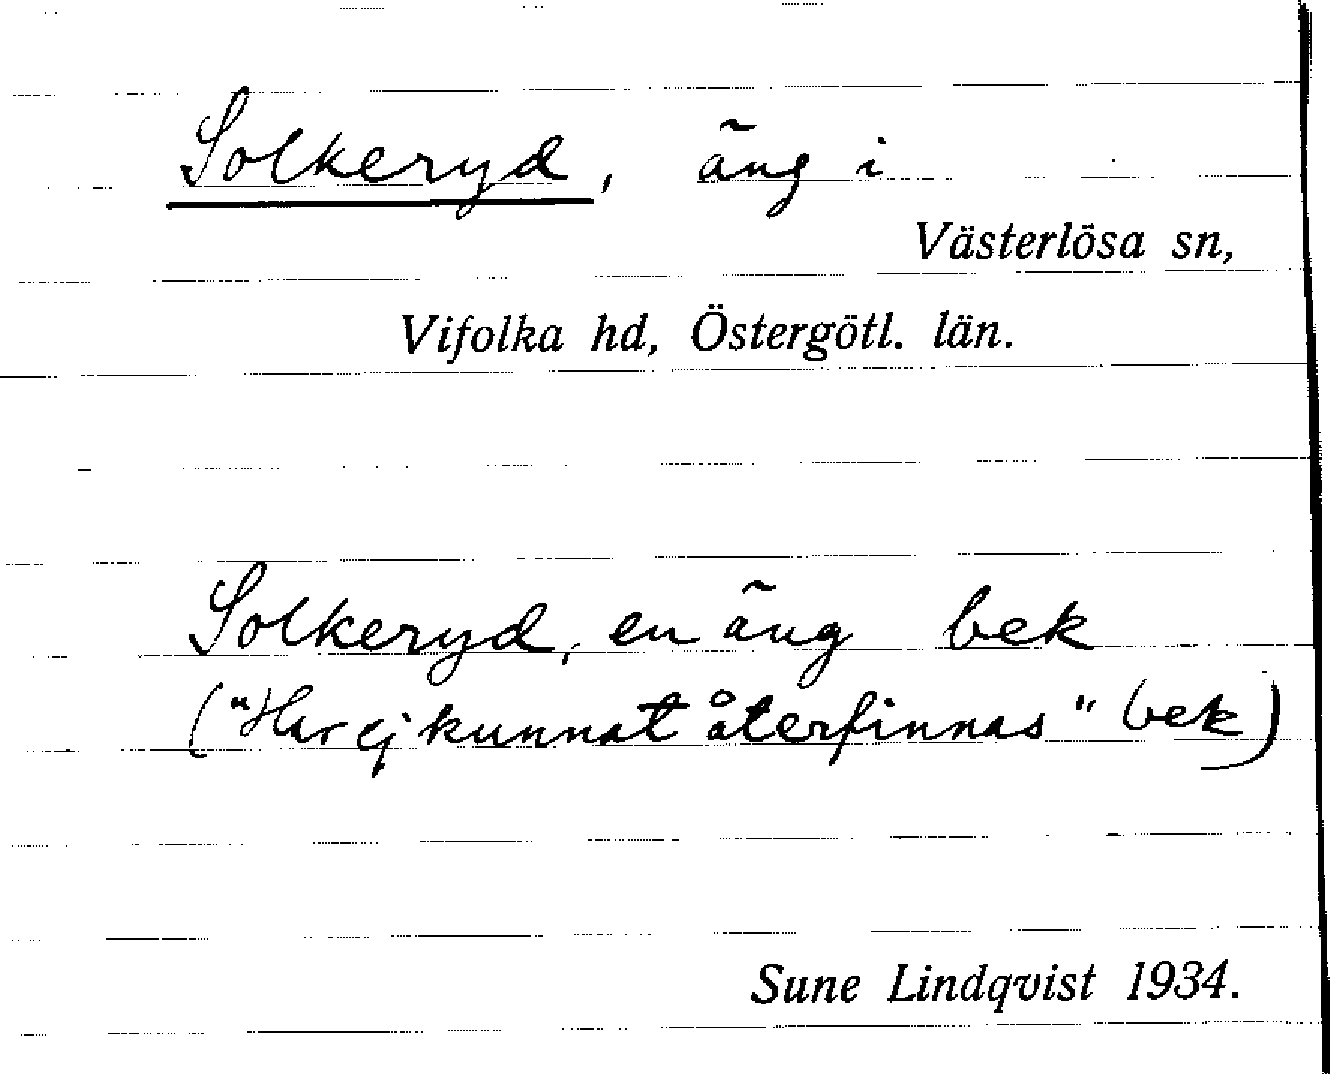 Solkeryd, äng i
Västerlösa sn,
Vifolka hd, Östergötl. län.
Solkeryd, en äng bek
("Har ej kunnat återfinnas" bek)
Sune Lindqvist 1934.